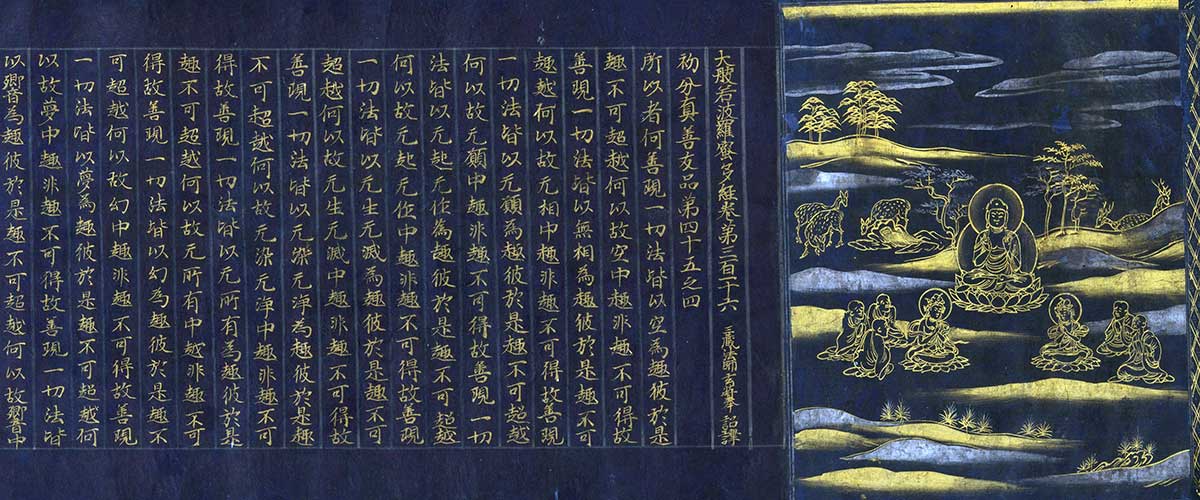 大般若波羅蜜多經卷第三百十六 三藏法師玄奘奉 詔譯
初分真善友品第四十五之四
所以者何善現一切法皆以空為趣彼於是
趣不可超越何以故空中趣非趣不可得故
善現一切法皆以無相為趣彼於是趣不可
超越何以故无相中趣非趣不可得故善現
一切法皆以无願為趣彼於是趣不可超越
何以故无願中趣非趣不可得故善現一切
法皆以无起无作為趣彼於是趣不可超越
何以故无起无作中趣非趣不可得故善現
一切法皆以无生无滅為趣彼於是趣不可
超越何以故无生无滅中趣非趣不可得故
善現一切法皆以无染无淨為趣彼於是趣
不可超越何以故无染无淨中趣非趣不可
得故善現一切法皆以无所有為趣彼於是
趣不可超越何以故无所有中趣非趣不可
得故善現一切法皆以幻為趣彼於是趣不
可超越何以故幻中趣非趣不可得故善現
一切法皆以夢為趣彼於是趣不可超越何
以故夢中趣非趣不可得故善現一切法皆
以響為趣彼於是趣不可超越何以故響中